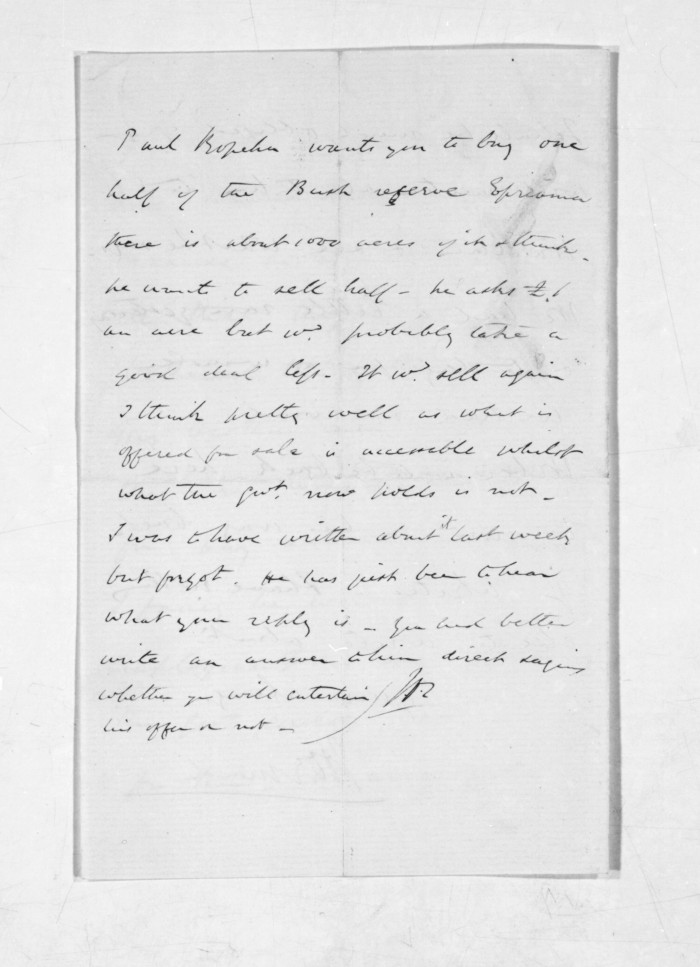 Paul Kopeha wants you to buy one
half of the Bush reserve
there is about 1000 acres of it I think.
he want to sell half - he asks £1
an acre but wd. probably take a
good deal less - It wd. sell again
I think pretty well as what is
offered for sale is accessible whilst
what the govt. now holds is not -
I was to have written about it last week
but forgot. He has just been to hear
what your reply is - you had better
write an answer to him direct saying
whether you will entertain
his offer or not -